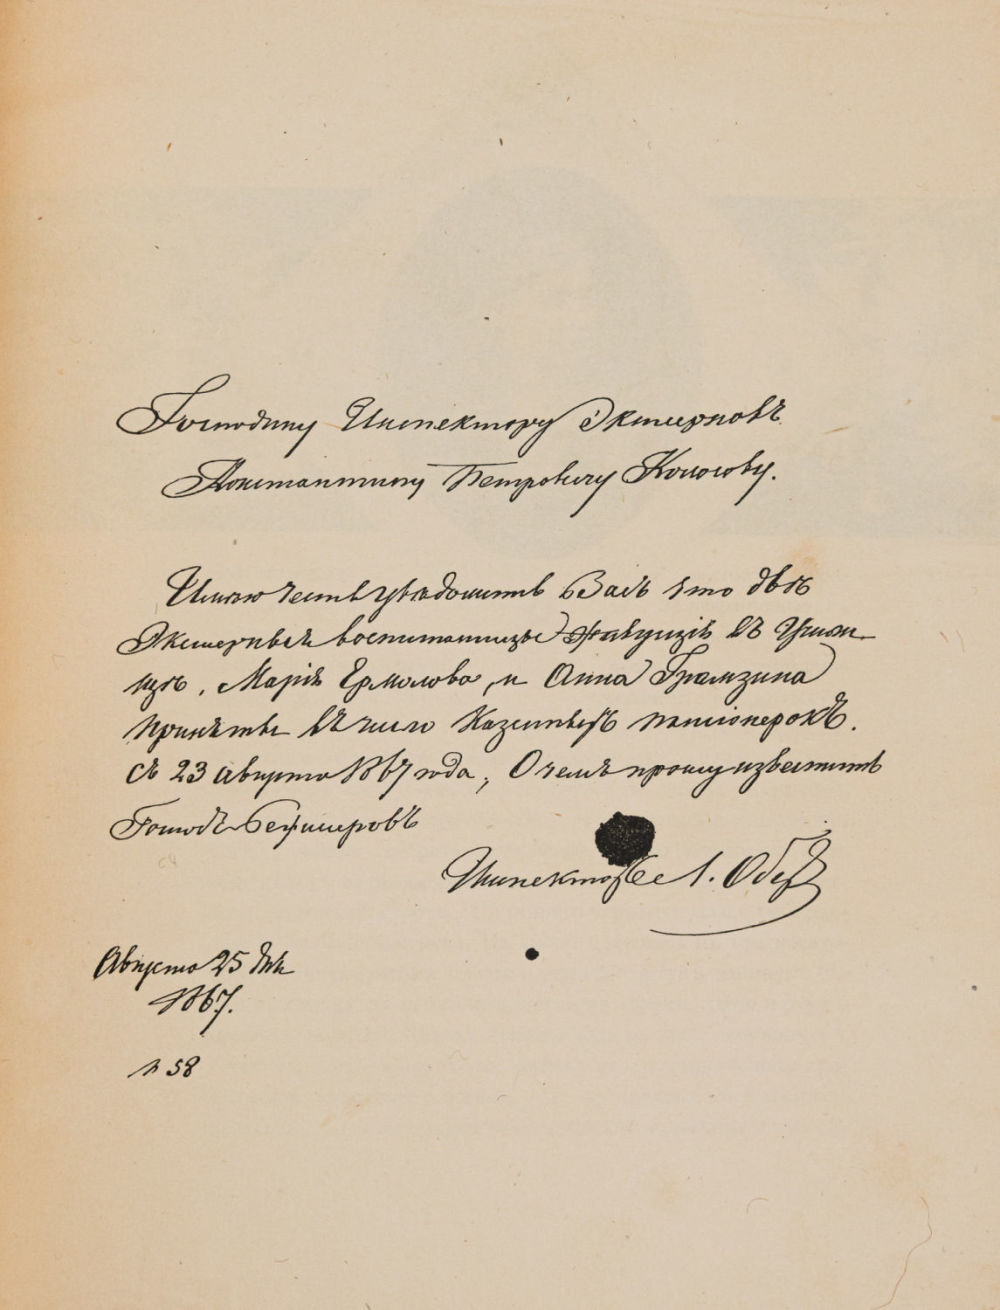 Господину Инспектору Экстерновъ
Константину Петровичу Колосову.
Имѣю честь увѣдомить Васъ что двѣ
Экстерныя воспитанницы живущія въ Учили-
щѣ, Марія Ермолова, и Анна Грамзина
приняты въ число Казенныхъ пансіонерокъ.
съ 23 Августа 1867 года, О чемъ прошу извѣстить
Господъ
Инспектор Л. Обер
Августа 25 дня
1867.
№ 58